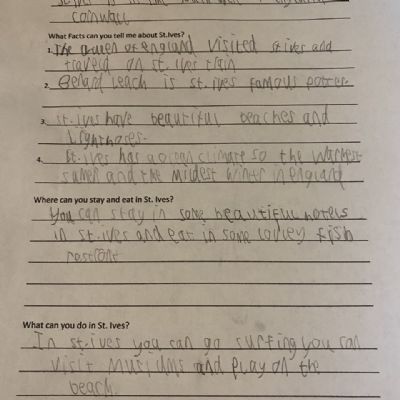 St.Ives is in the
cornwall
What Facts can you tell me about St.Ives?
1. The queen of england visited st ives and
traveld on st. ives train
2. Berard leach is st. ives famous potter.
3. st. ives have beautiful beaches and
4. St. ives has a ocean climate so the
sumer and the mildest winter in england
Where can you stay and eat in St. Ives?
You can stay in some beautiful hotels
in st. ives and eat in some fish
What can you do in St. Ives?
In st. ives you can go surfing you can
visit musiums and play on the
beach